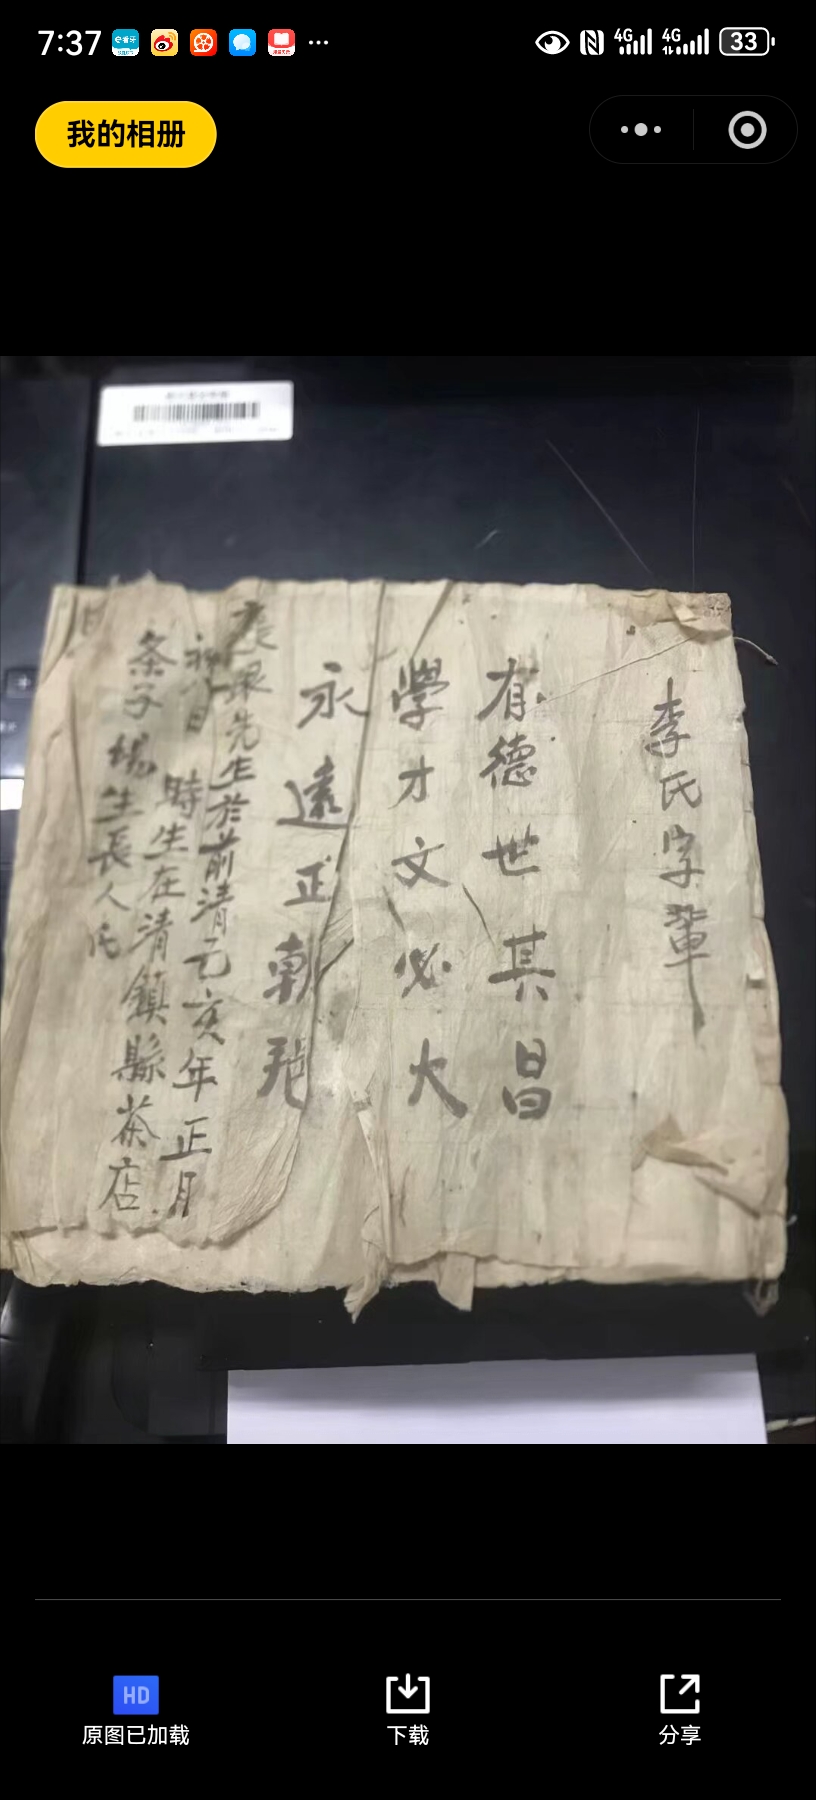 7:37
e看牙
4G
4G
33
我的相册
李氏字輩
有德世其昌
學才文必大
永遠正朝
先生於前清元亥年正月
時生在清鎮縣茶店
条子場生長人氏
HD
原图已加载
下载
分享